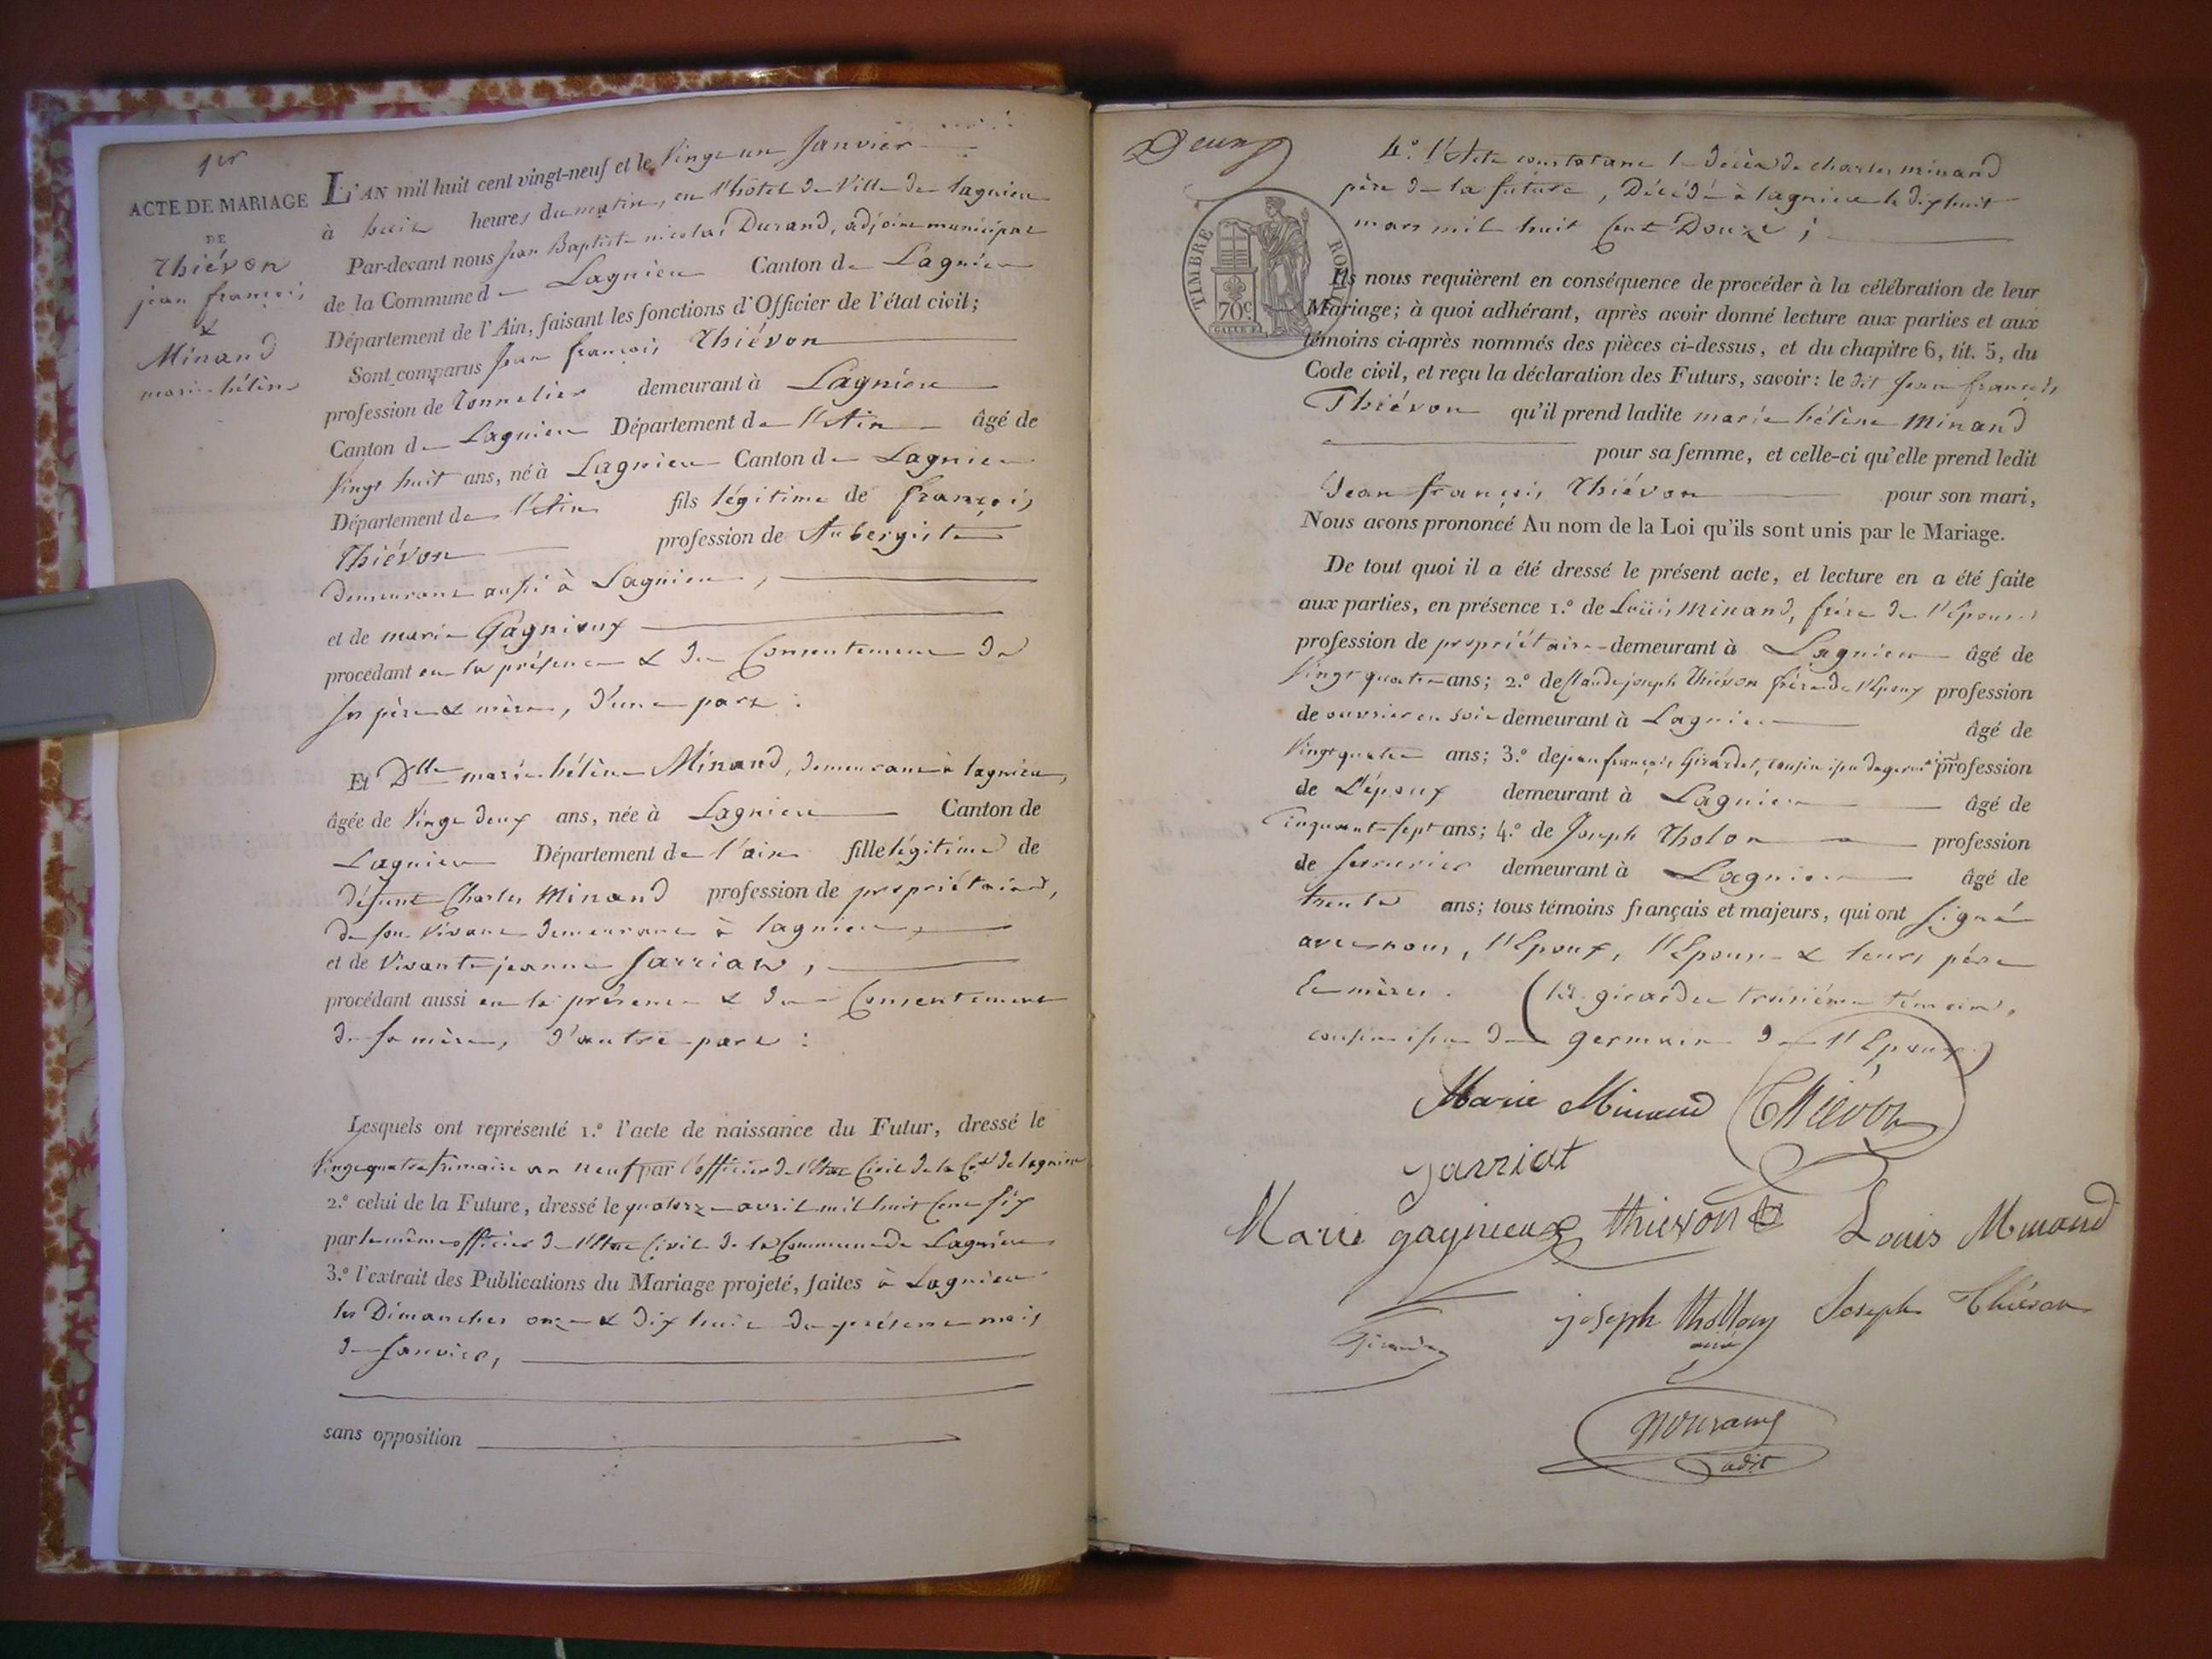 1er
ACTE DE MARIAGE
DE
Thiévon
jean françois
&
Minand
marie hélène
L'AN mil huit cent vingt-neuf et le Vingt un Janvier
à huit heures du matin, en l'hôtel de Ville de lagnieu
Par-devant nous Jean Baptiste nicolas Durand, adjoint municipal
de la Commune de Lagnieu Canton de Lagnieu
Département de l'Ain, faisant les fonctions d'Officier de l'état civil;
Sont comparus Jean françois Thiévon
profession de Tonnelier demeurant à Lagnieu
Canton de Lagnieu Département de l'Ain âgé de
Vingt huit ans, né à Lagnieu Canton de Lagnieu
Département de l'Ain fils légitime de françois
Thiévon profession de Aubergiste
demeurant aussi à Lagnieu,
et de marie Gagnieux
procédant en la présence & du Consentement de
ses père & mère, d'une part:
Et Dlle marie hélène Minand, demeurant à lagnieu,
âgée de Vingt deux ans, née à Lagnieu Canton de
Lagnieu Département de l'ain fille légitime de
défunt Charles Minand profession de propriétaire,
de son Vivant demeurant à lagnieu,
et de Vivante jeanne Jarriat,
procédant aussi en la présence & du Consentement
de sa mère, d'autre part:
Lesquels ont représenté 1.º l'acte de naissance du Futur, dressé le
Vingt quatre frimaire an neuf par l'officier de l'Etat Civil de la Cne de lagnieu
2.º celui de la Future, dressé le quatorze avril mil huit Cent six
par le même officier de l'Etat Civil de la Commune de Lagnieu
3.º l'extrait des Publications du Mariage projeté, faites à Lagnieu
les Dimanches onze & dix huit du présent mois
de Janvier,
sans opposition
Deux
4.º l'Acte constatant le décès de charles minand
père de la future, Décédé à lagnieu le dix huit
mars mil huit Cent Douze;
TIMBRE ROYAL
70c
Ils nous requièrent en conséquence de procéder à la célébration de leur
Mariage; à quoi adhérant, après avoir donné lecture aux parties et aux
témoins ci-après nommés des pièces ci-dessus, et du chapitre 6, tit. 5, du
Code civil, et reçu la déclaration des Futurs, savoir: le dit Jean françois
Thiévon qu'il prend ladite marie hélène Minand
pour sa femme, et celle-ci qu'elle prend ledit
Jean françois Thiévon pour son mari,
Nous avons prononcé Au nom de la Loi qu'ils sont unis par le Mariage.
De tout quoi il a été dressé le présent acte, et lecture en a été faite
aux parties, en présence 1.º de Louis Minand, frère de l'Epouse
profession de propriétaire demeurant à Lagnieu âgé de
Vingt quatre ans; 2.º de Claude joseph Thiévon frère de l'Epoux profession
de ouvrier en soie demeurant à Lagnieu âgé de
Vingt quatre ans; 3.º de jean françois Girardet, cousin issu de germain profession
de L'époux demeurant à Lagnieu âgé de
Cinquante sept ans; 4.º de Joseph Tholon profession
de serrurier demeurant à Lagnieu âgé de
trente ans; tous témoins français et majeurs, qui ont signé
avec nous, l'Epoux, l'Epouse & leurs père
& mères. (led. girardet troisième témoin,
cousin issu de germain de l'Epoux.)
Marie Minand Thiévon
Jarriat
Marie gagnieux thievon Louis Minand
joseph thollon Joseph Thiévon
ainé
Durand
adjt